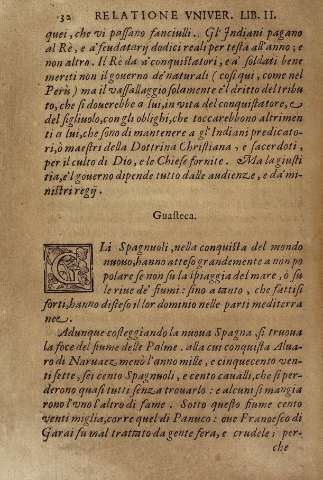 32 RELATIONE VNIVER. LIB. II.
quei, che vi passano fanciulli. Gl' Indiani pagano
al Rè, e a' feudatarij dodici reali per testa all'anno; e
non altro. Il Rè da a' conquistatori, e a' soldati bene
meriti non il gouerno de' naturali (così quì, come nel
Perù) ma il vassallaggio solamente e'l dritto del tribu
to, che si dourebbe a lui, in vita del conquistatore, e
del figliuolo, con gli oblighi, che toccarebbono altrimen
ti a lui, che sono di mantenere a gl' Indiani predicato-
ri, ò maestri della Dottrina Christiana, e sacerdoti,
per il culto di Dio, e le Chiese fornite. Ma la giusti
tia, e'l gouerno dipende tutto dalle audienze, e da' mi-
nistri regij.
Guasteca.
GLi Spagnuoli, nella conquista del mondo
nuouo, hanno atteso grandemente a non po
polare se non su la spiaggia del mare, ò su
le riue de' fiumi: sino a tanto, che fattisi
forti, hanno disteso il lor dominio nelle parti mediterra
nee.
Adunque costeggiando la nuoua Spagna, si truoua
la foce del fiume delle Palme. alla cui conquista Alua-
ro di Naruaez, menò l'anno mille, e cinquecento ven-
ti sette, sei cento Spagnuoli, e cento caualli, che si per-
derono quasi tutti senza trouarlo: e alcuni si mangia
rono l'vno l'altro di fame. Sotto questo fiume cento
venti miglia, corre quel di Panuco: oue Francesco di
Garai fu mal trattato da gente fera, e crudele; per-
che